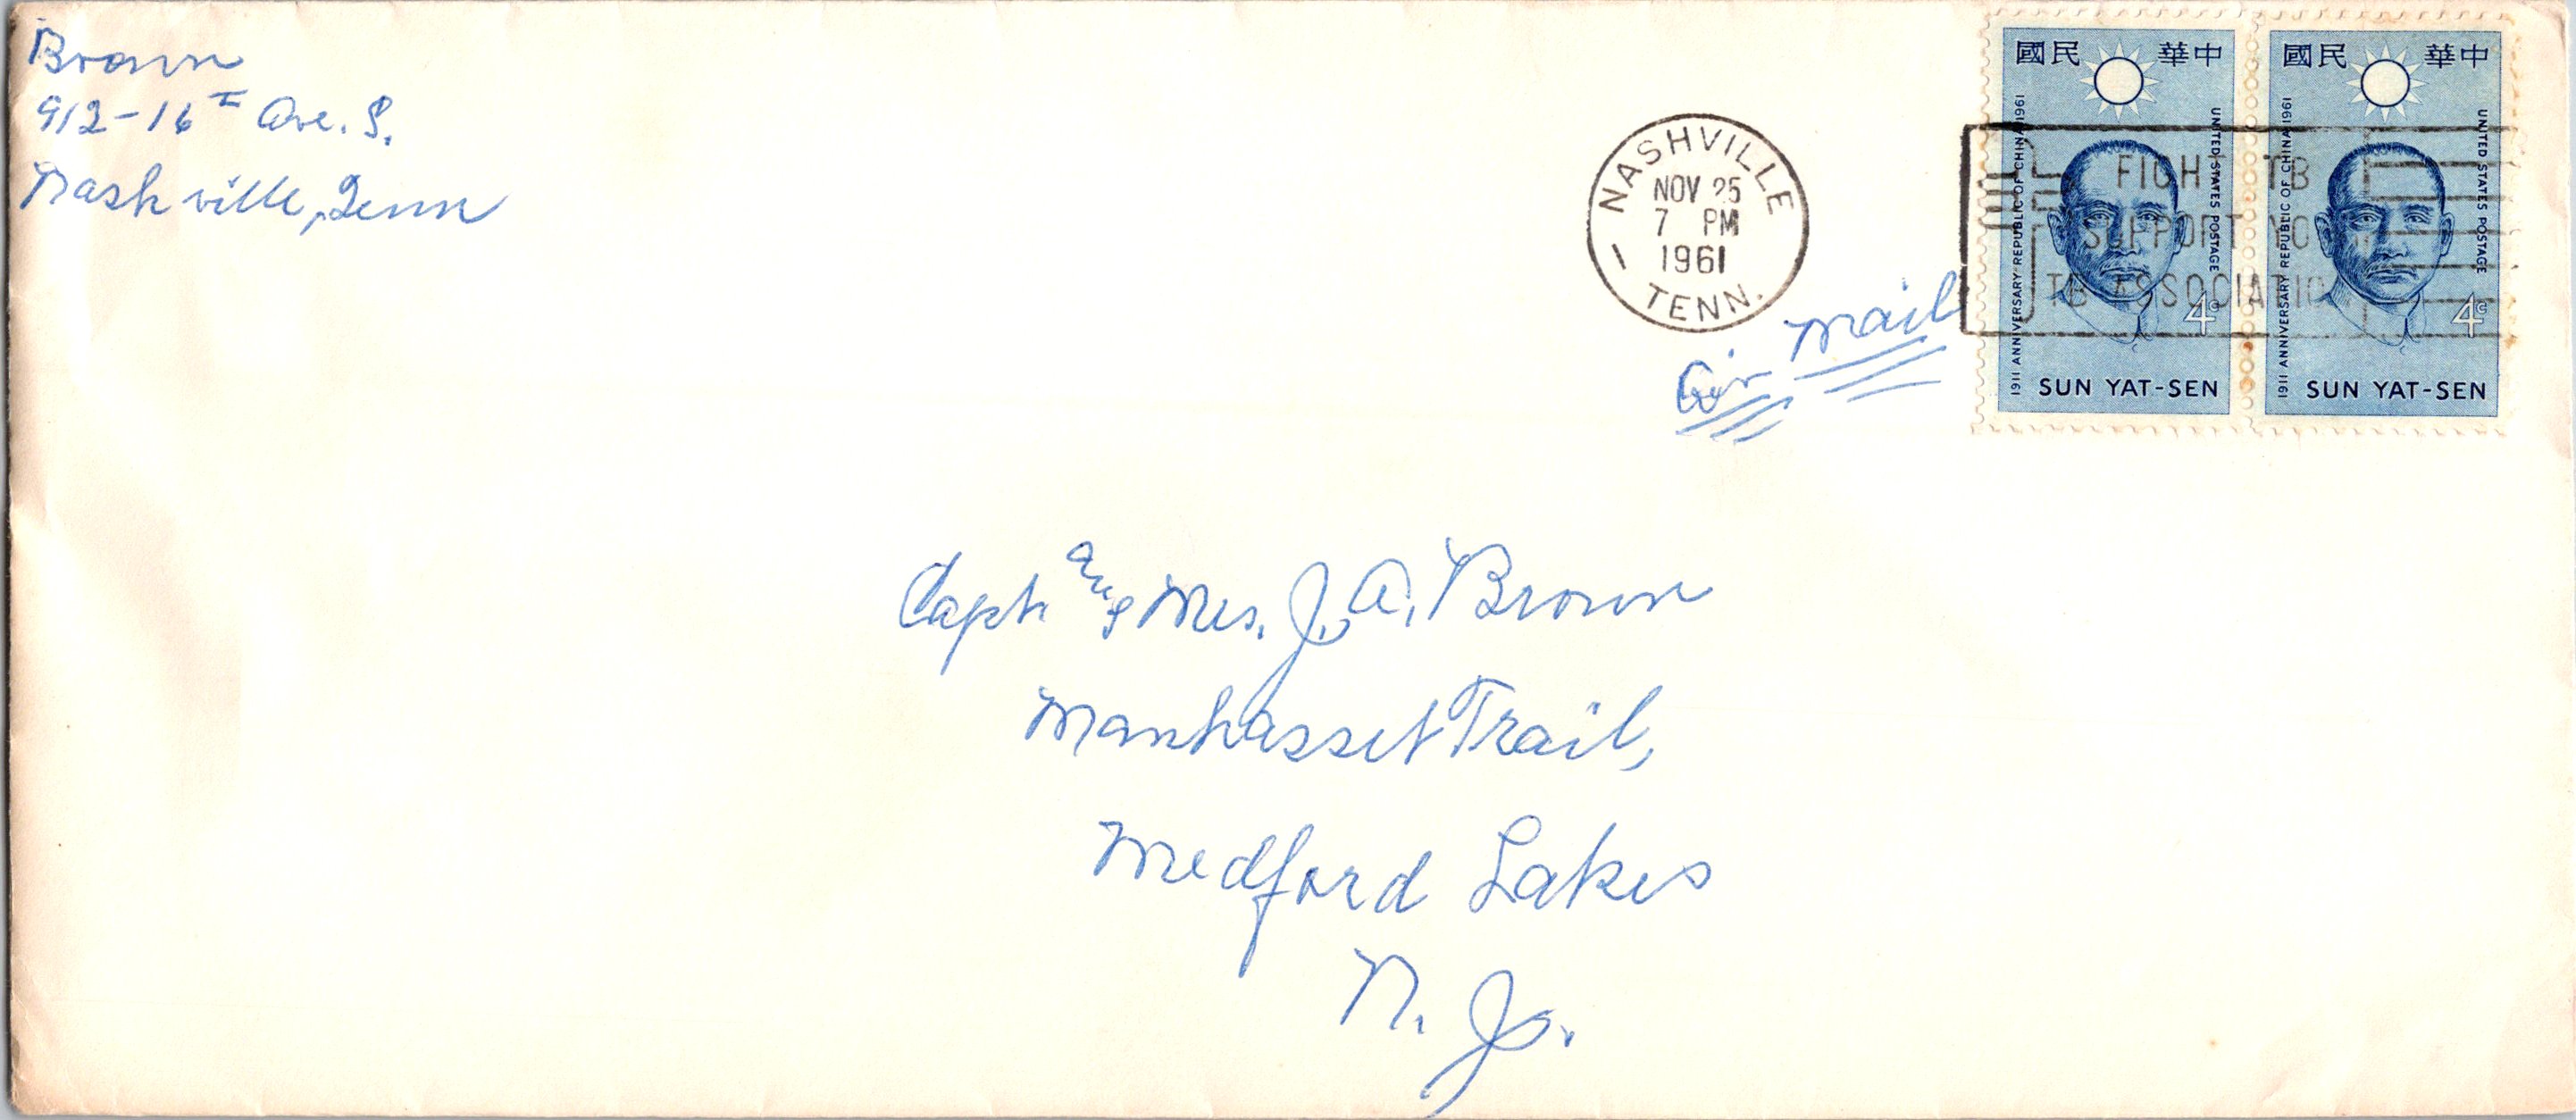 Brown
912-16th Ave. S.
Nashville, Tenn
NASHVILLE
NOV 25
7 PM
1961
1
TENN.
Air Mail
FIGHT TB
SUPPORT YOUR
TB ASSOCIATION
國民 華中
1911 ANNIVERSARY REPUBLIC OF CHINA 1961
UNITED STATES POSTAGE
4c
SUN YAT-SEN
國民 華中
1911 ANNIVERSARY REPUBLIC OF CHINA 1961
UNITED STATES POSTAGE
4c
SUN YAT-SEN
Capt. and Mrs. J. A. Brown
Manhasset Trail,
Medford Lakes
N. J.